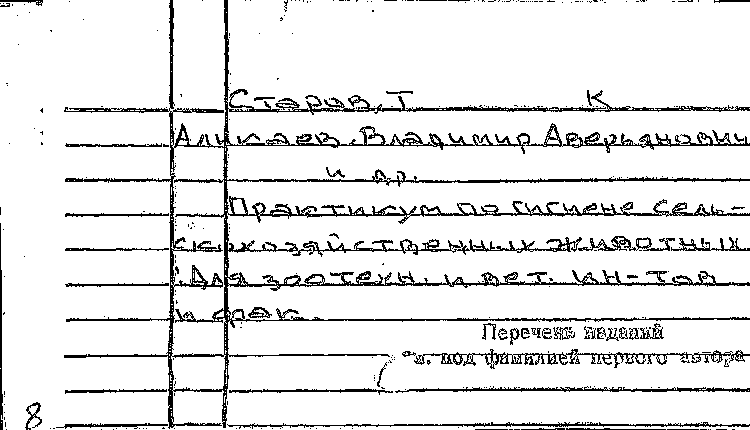 Старов, Т К
Аликаев, Владимир Аверьянович
и др.
Практикум по гигиене сель-
скохозяйственных животных
: Для зоотехн. и вет. ин-тов
и фак.
Перечень изданий
см. под фамилией первого автора
8